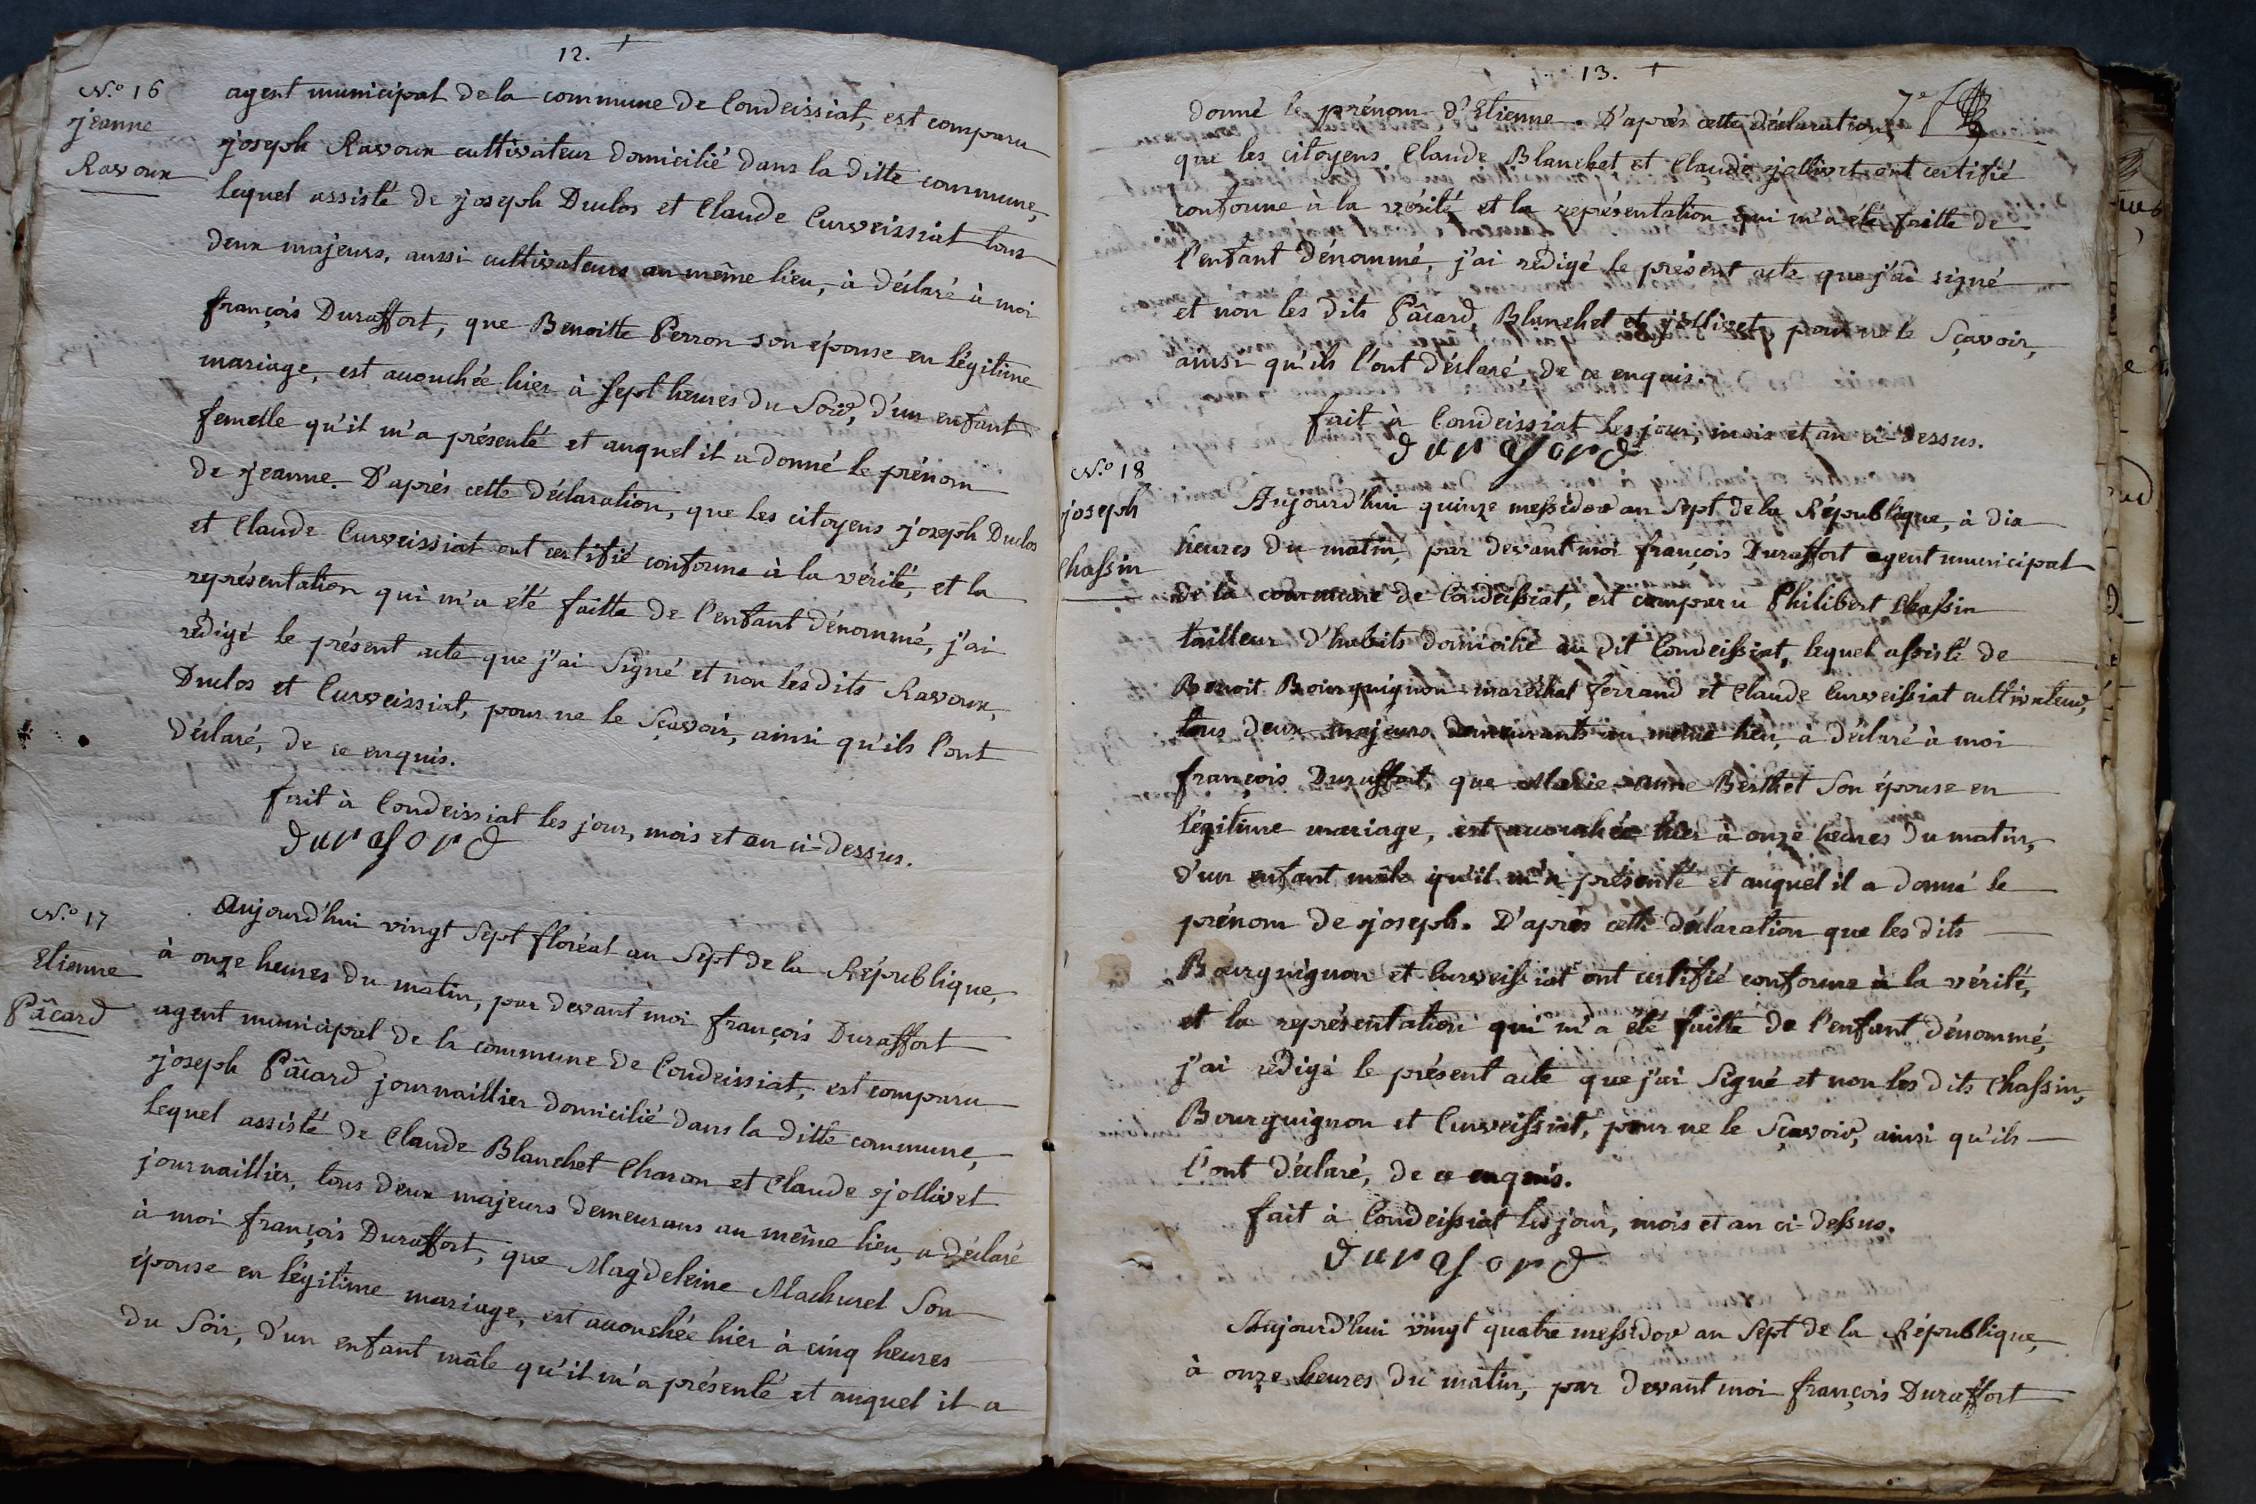 12. +
N.º 16
jeanne
Ravoux
agent municipal de la commune de Condeissiat, est comparu
joseph Ravoux cultivateur domicilié dans la ditte commune,
lequel assisté de joseph Duclos et Claude Curveissiat tous
deux majeurs, aussi cultivateurs au même lieu, à déclaré à moi
françois Duraffort, que Benoitte Perron son épouse en légitime
mariage, est accouchée hier à sept heures du Soir, d'un enfant
femelle qu'il m'a présenté et auquel il a donné le prénom
de jeanne. D'après cette déclaration, que les citoyens joseph Duclos
et Claude Curveissiat ont certifié conforme à la vérité, et la
représentation qui m'a été faitte de l'enfant dénommé, j'ai
rédigé le présent acte que j'ai Signé et non les dits Ravoux,
Duclos et Curveissiat, pour ne le Sçavoir, ainsi qu'ils l'ont
déclaré, de ce enquis.
fait à Condeissiat les jour, mois et an ci-dessus.
duraford
N.º 17
Etienne
Pâcard
Aujourd'hui vingt Sept floréal an Sept de la République,
à onze heures du matin, par devant moi françois Duraffort
agent municipal de la commune de Condeissiat, est comparu
joseph Pâcard journaillier domicilié dans la ditte commune,
lequel assisté de Claude Blanchet Charon et Claude jollivet
journaillier, tous deux majeurs demeurans au même lieu, a déclaré
à moi françois Duraffort, que Magdeleine Machurel Son
épouse en légitime mariage, est accouchée hier à cinq heures
du Soir, d'un enfant mâle qu'il m'a présenté et auquel il a
13. +
7e
donné le prénom d'Etienne. D'après cette déclaration,
que les citoyens Claude Blanchet et Claude jollivet ont certifié
conforme à la vérité et la représentation qui m'a été faitte de
l'enfant dénommé, j'ai rédigé le présent acte que j'ai signé
et non les dits Pâcard, Blanchet et jollivet, pour ne le Sçavoir,
ainsi qu'ils l'ont déclaré, de ce enquis.
fait à Condeissiat les jour, mois et an ci-dessus.
duraford
N.º 18
joseph
Chassin
Aujourd'hui quinze messidor an Sept de la République, à dix
heures du matin, par devant moi françois Duraffort agent municipal
de la commune de Condeissiat, est comparu Philibert Chassin
tailleur d'habits domicilié au dit Condeissiat, lequel assisté de
Benoit Bourguignon maréchal ferrand et Claude Curveissiat cultivateur,
tous deux majeurs demeurants au même lieu, à déclaré à moi
françois Duraffort, que Marie-anne Berthet Son épouse en
légitime mariage, est accouchée hier à onze heures du matin,
d'un enfant mâle qu'il m'a présenté et auquel il a donné le
prénom de joseph. D'après cette déclaration que les dits
Bourguignon et Curveissiat ont certifié conforme à la vérité,
et la représentation qui m'a été faitte de l'enfant dénommé,
j'ai rédigé le présent acte que j'ai Signé et non les dits Chassin,
Bourguignon et Curveissiat, pour ne le Sçavoir, ainsi qu'ils
l'ont déclaré, de ce enquis.
fait à Condeissiat les jour, mois et an ci-dessus.
duraford
Aujourd'hui vingt quatre messidor an Sept de la République,
à onze heures du matin, par devant moi françois Duraffort